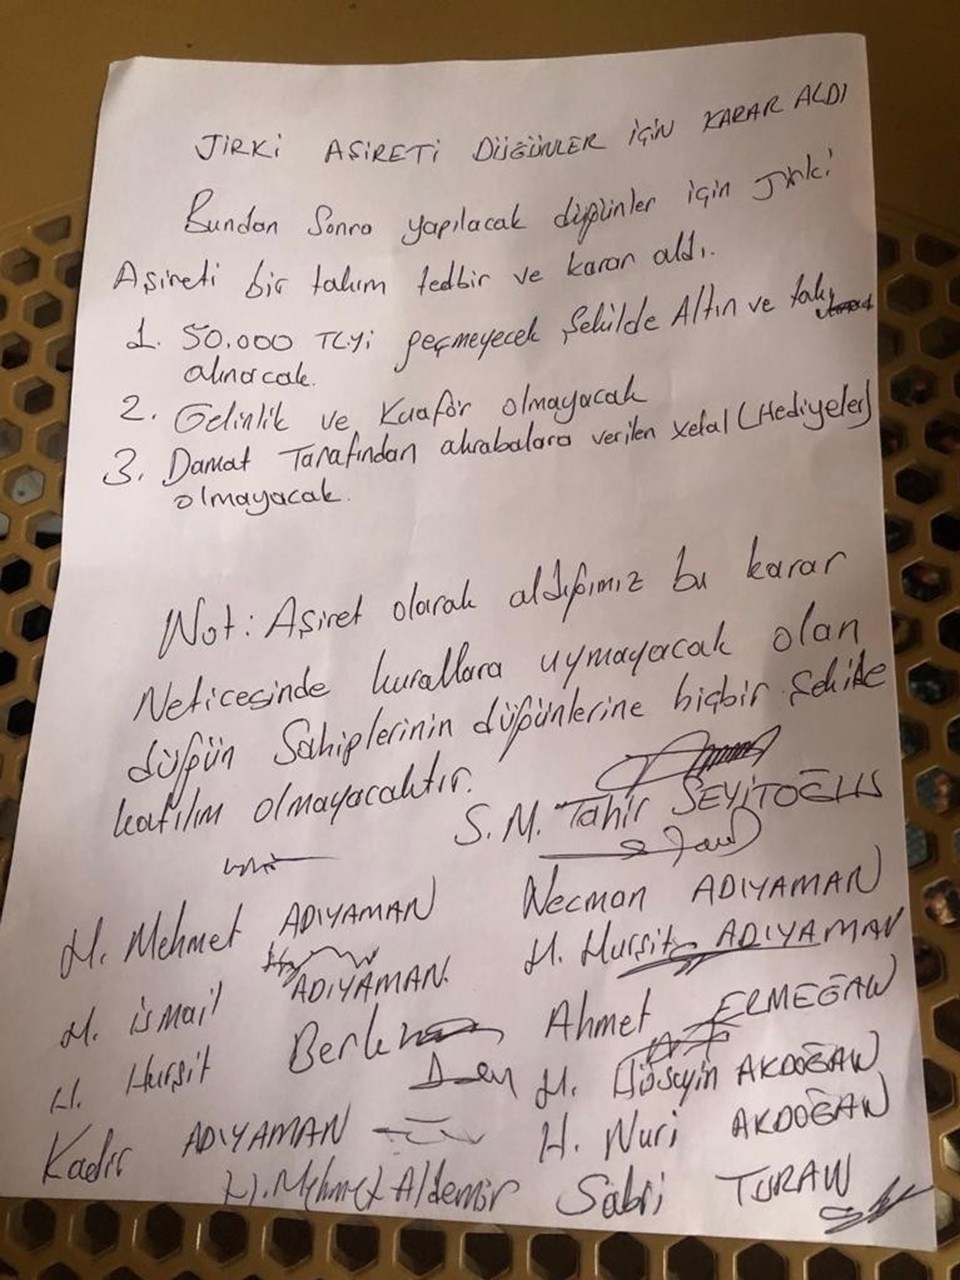 JİRKİ AŞİRETİ DÜĞÜNLER İÇİN KARAR ALDI
Bundan Sonra yapılacak düğünler için Jirki
Aşireti bir takım tedbir ve karar aldı.
1. 50.000 TLyi geçmeyecek Şekilde Altın ve takı
alınacak.
2. Gelinlik ve Kuaför olmayacak
3. Damat Tarafından akrabalara verilen xelat (Hediyeler)
olmayacak.
Not: Aşiret olarak aldığımız bu karar
Neticesinde kurallara uymayacak olan
düğün Sahiplerinin düğünlerine hiçbir Şekilde
katılım olmayacaktır.
S.M. Tahir SEYİTOĞLU
H. Mehmet ADIYAMAN Necman ADIYAMAN
H. İsmail ADIYAMAN. H. Hurşit ADIYAMAN
H. Hurşit Ahmet ERMEĞAN
H. Hüseyin AKDOĞAN
Kadir ADIYAMAN H. Nuri AKDOĞAN
H. Mehmet Aldemir Sabri TURAN